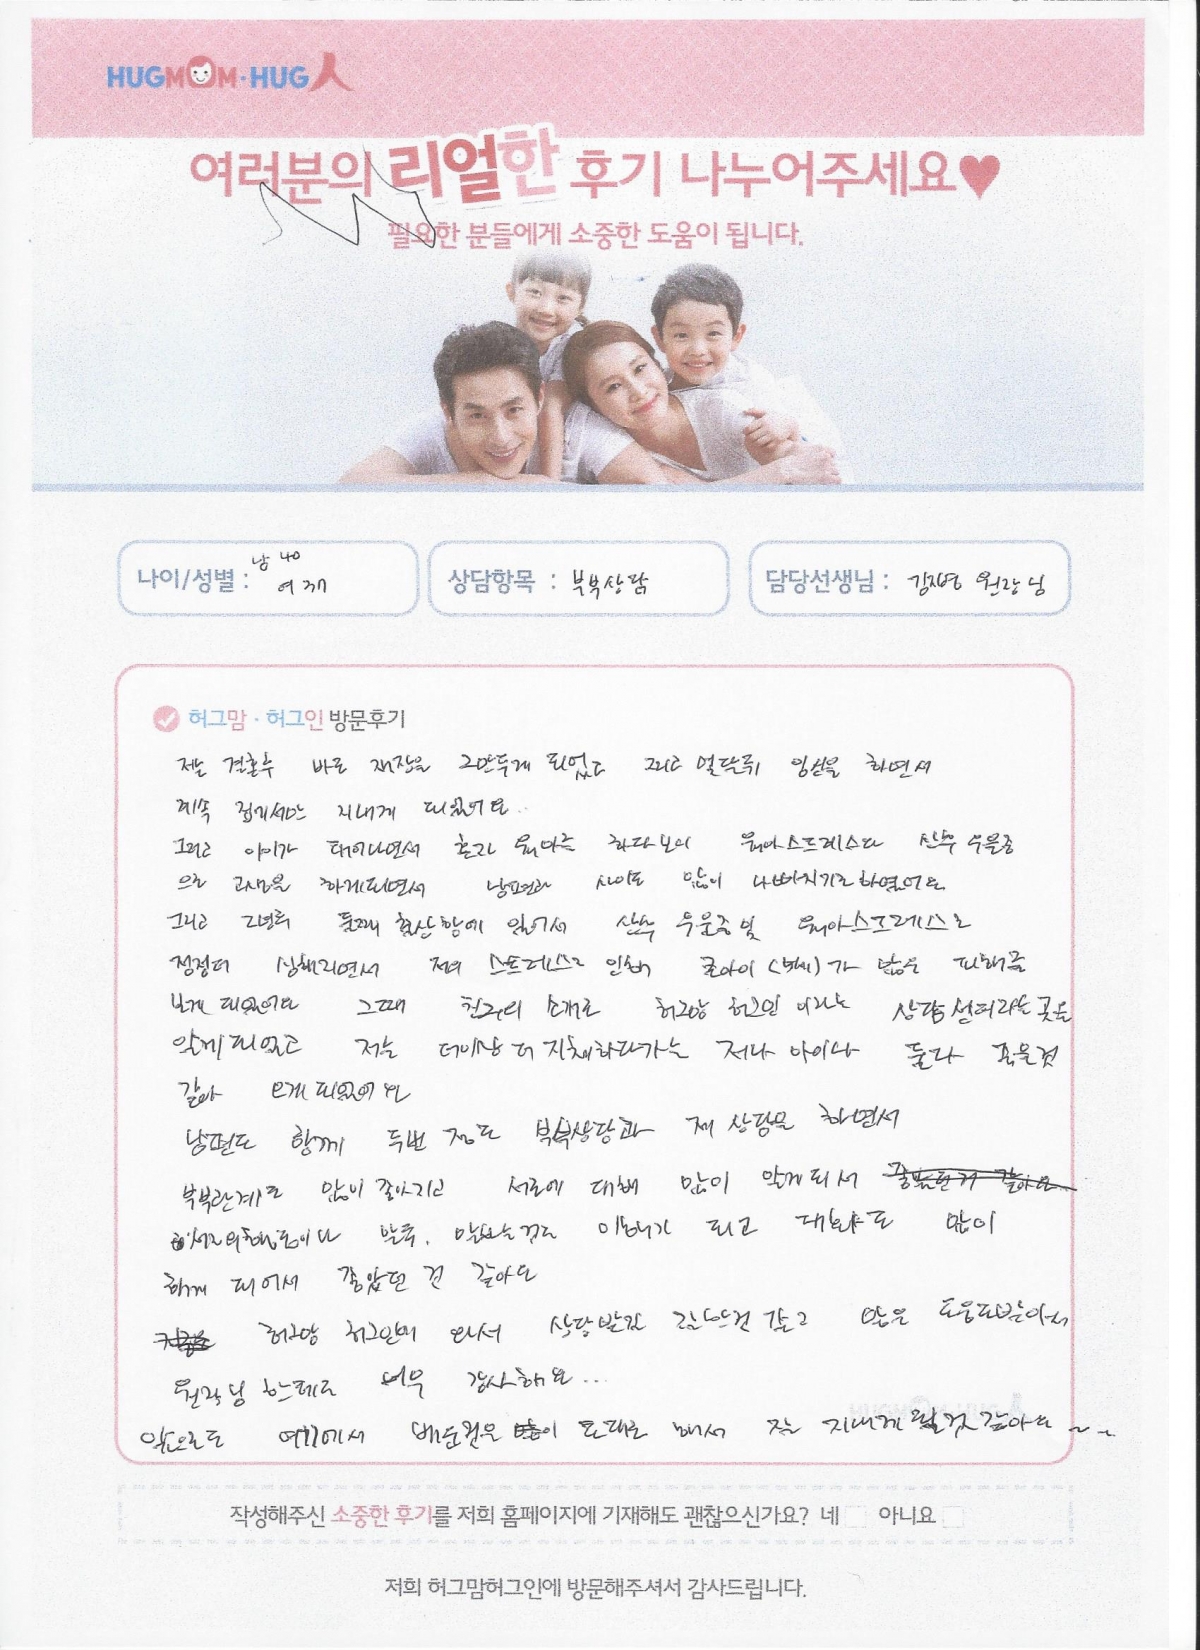 HUGMOM·HUG人
여러분의 리얼한 후기 나누어주세요♥
필요한 분들에게 소중한 도움이 됩니다.
나이/성별 : 남 40
여
상담항목 : 부부상담
담당선생님 : 김지영 원장님
허그맘·허그인 방문후기
저는 결혼후 바로 직장을 그만두게 되었고 그리고 열달뒤 임신을 하면서
계속 집에서만 지내게 되었어요..
그리고 아이가 태어나면서 혼자 육아를 하다보니 육아스트레스다 산후우울증
으로 고생을 하게되면서 남편과 사이도 많이 나빠지기도하였어요
그리고 2년뒤 둘째 출산함에 있어서 산후 우울증및 육아스트레스로
점점더 심해지면서 저의 스트레스로 인해 큰아이 가 많은 피해를
보게 되었어요 그때 친구의 소개로 허그맘 허그인 이라는 상담센터라는곳을
알게되었고 저는 더이상 더 지체하다가는 저나 아이나 둘다 죽을것
같아 오게 되었어요
남편도 함께 두번 정도 부부상담과 제 상담을 하면서
부부관계도 많이 좋아지고 서로에 대해 많이 알게되서
서로의행동이나 말투, 이해가 되고 대화도 많이
하게 되어서 좋았던 건 같아요
허그맘 허그인에 와서 상담받길 잘한건 같고 많은 도움도받아서
원장님 한테도 너무 감사해요...
앞으로도 여기에서 배운것을 토대로 해서 잘 지내게 될것 같아요~~
작성해주신 소중한 후기를 저희 홈페이지에 기재해도 괜찮으신가요? 네 아니요
저희 허그맘허그인에 방문해주셔서 감사드립니다.